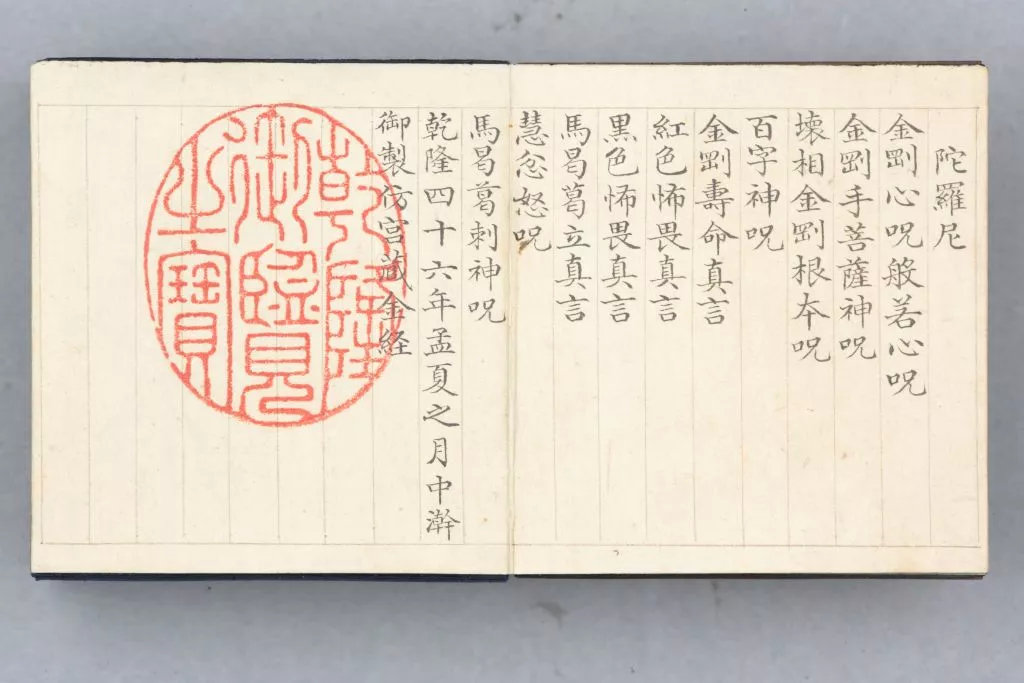 陀羅尼
金剛心呪般若心呪
金剛手菩薩神呪
壊相金剛根本呪
百字神呪
金剛壽命真言
紅色怖畏真言
黒色怖畏真言
馬曷葛立真言
慧忿怒呪
馬曷葛刺神呪
乾隆四十六年孟夏之月中澣
御製仿宮藏金経
乾隆
御覽
之寶